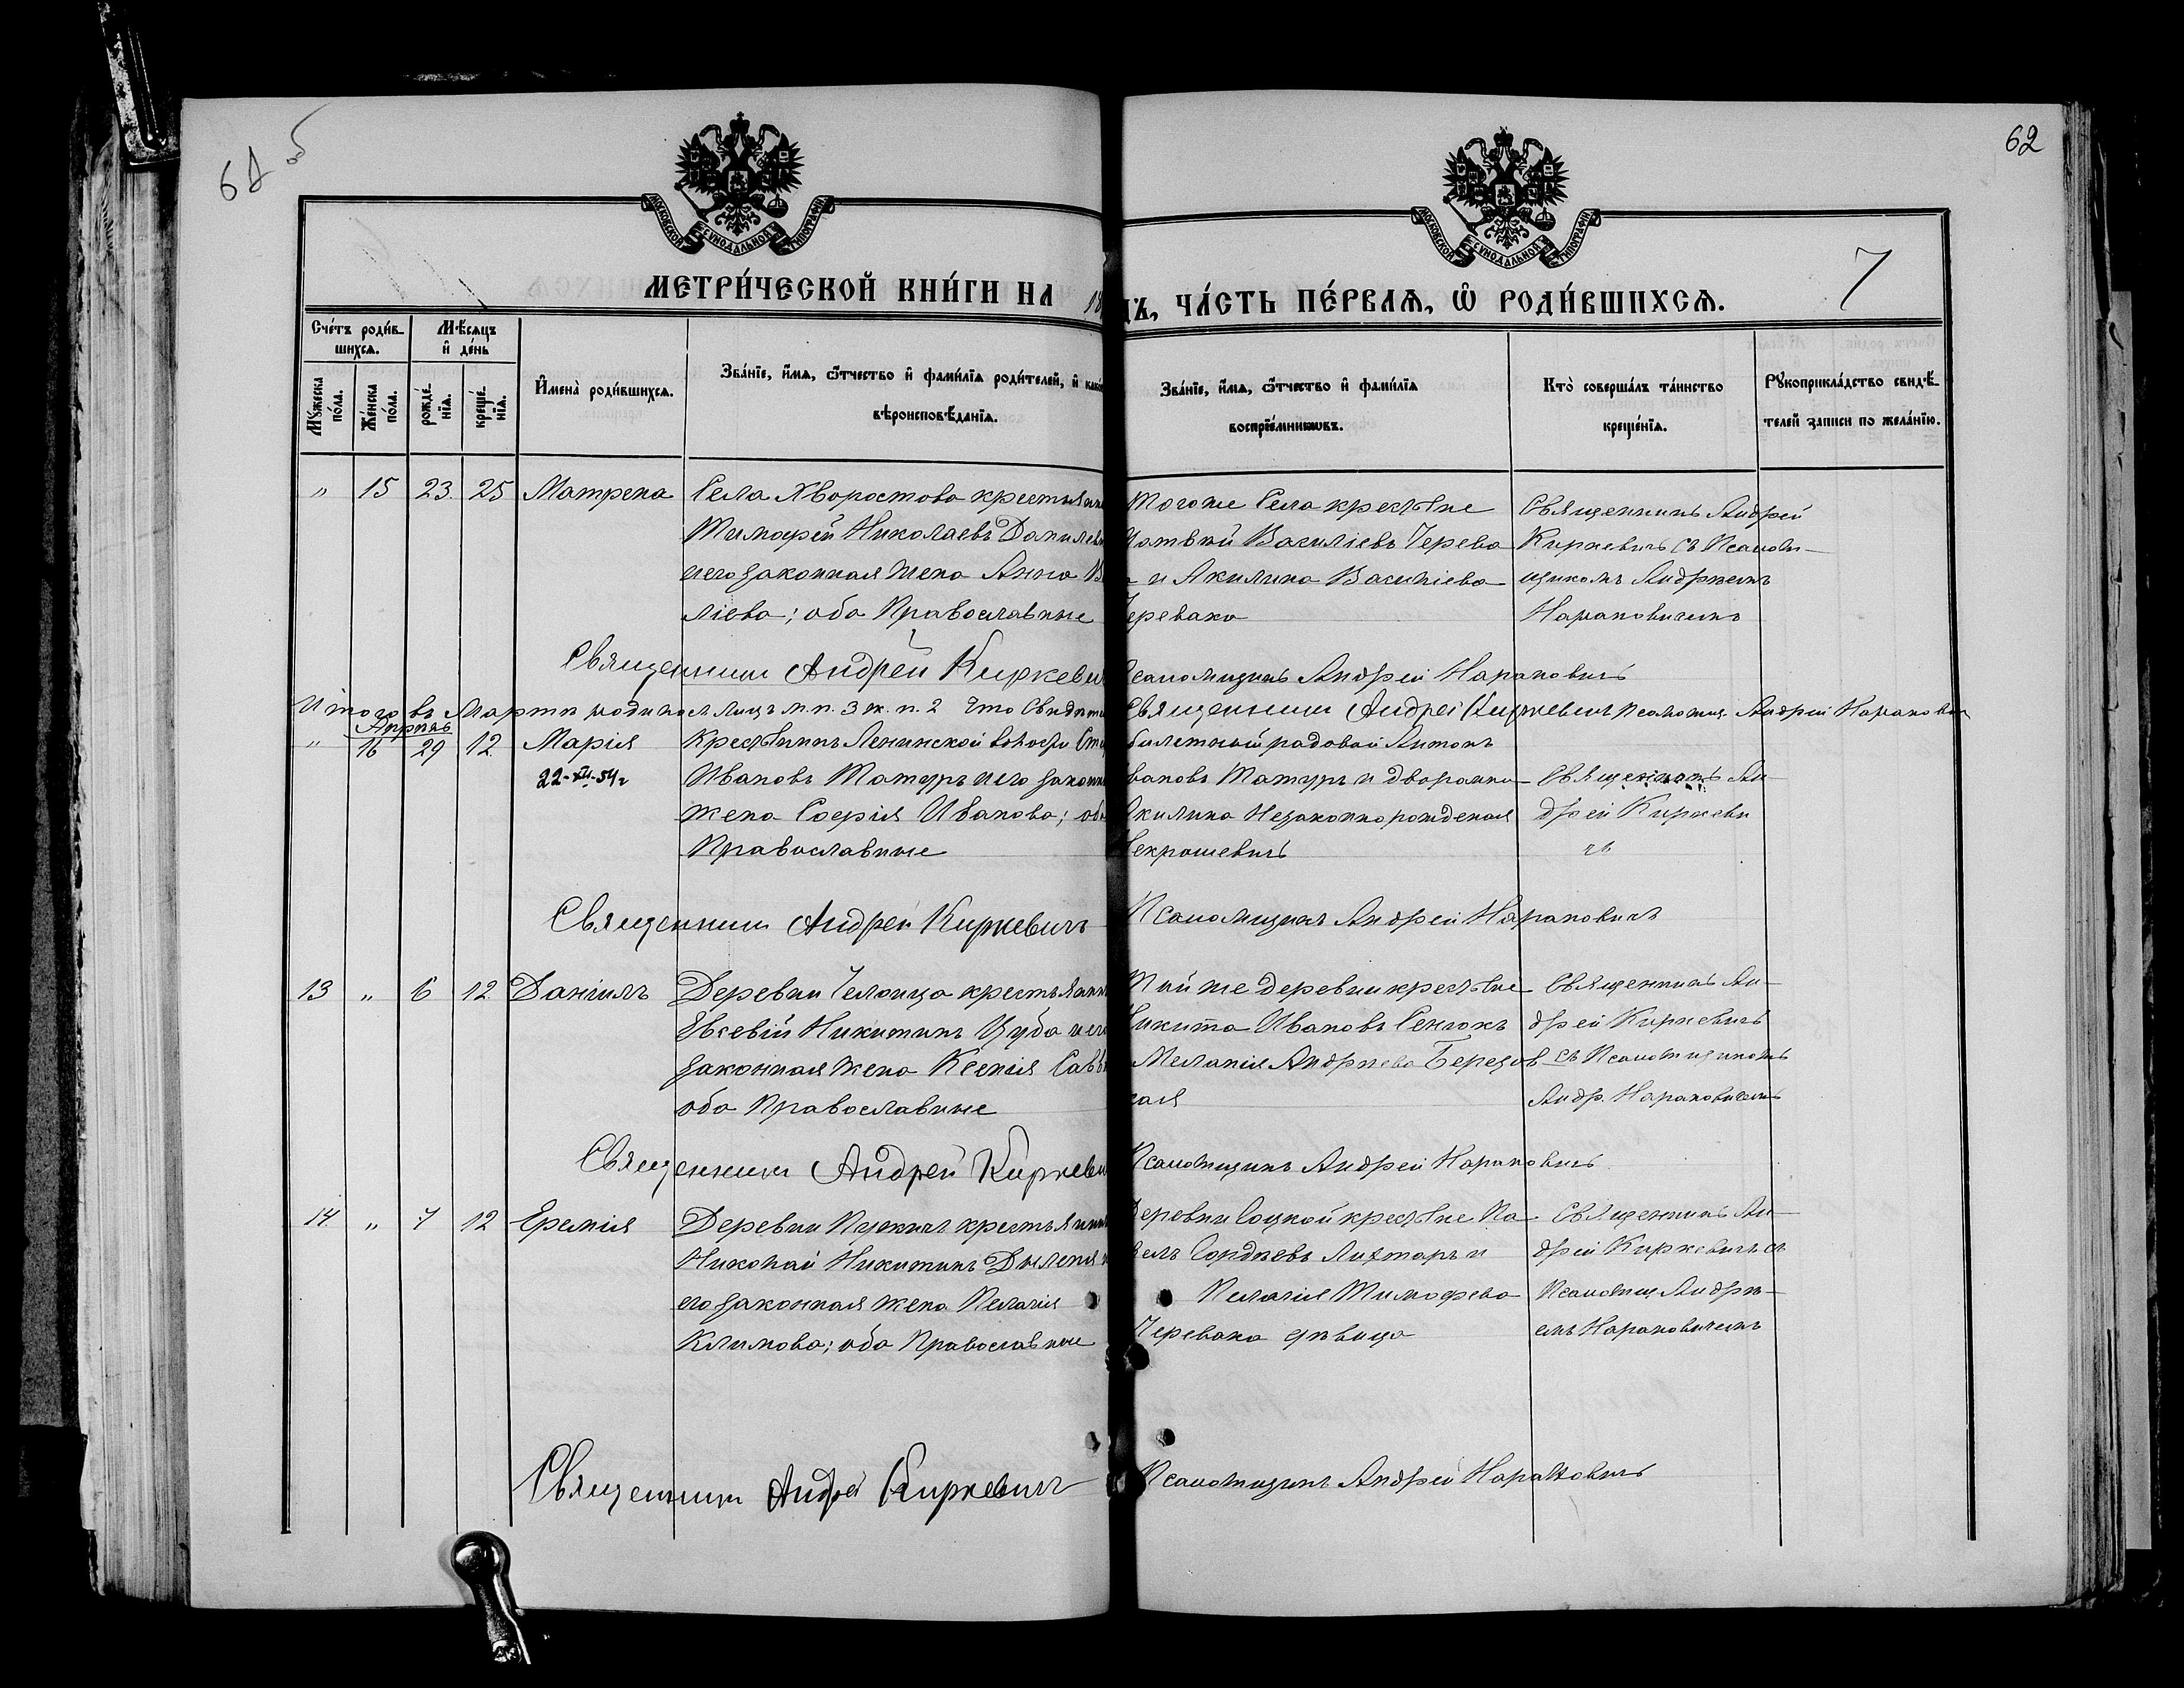 61 об
62
МОСКОВСКОЙ СѴНОДАЛЬНОЙ ТИПОГРАФІИ
МОСКОВСКОЙ СѴНОДАЛЬНОЙ ТИПОГРАФІИ
МЕТРИ́ЧЕСКОЙ КНИ́ГИ НА 18
ДЪ, ЧА́СТЬ ПЕ́РВАѦ, Ѿ РОДИ́ВШИХСѦ.
7
Сче́тъ роди́в-
шихсѧ.
Мѣ́сѧцъ
и҆ де́нь
Мꙋ́жеска по́ла.
Же́нска по́ла.
рожде́-
нїѧ.
креще́-
нїѧ.
И҆мена̀ роди́вшихсѧ.
Зва́нїе, и҆́мѧ, ѻ҆́тчество и҆ фами́лїѧ роди́телей, и҆ како
вѣроисповѣ́данїѧ.
Зва́нїе, и҆́мѧ, ѻ҆́тчество и҆ фами́лїѧ
воспрїе́мникѡвъ.
Кто̀ соверша́лъ та́инство
креще́нїѧ.
Рꙋкоприкла́дство свидѣ́-
телей записи по жела́нїю.
" 15 23. 25 Матрена Села Хворостова крестьянин
Тимофей Николаевъ Данилеви
и его законная жена Анна В
ліева; оба Православные
Тогоже Села крестьне
Матвѣй Василіевъ Черева
и Акилина Василіева
Черевако
Священникъ Андрей
Киркевичъ съ Псаломъ-
щикомъ Андреемъ
Нарановичемъ
Священникъ Андрей Киркевич
Псаломщикъ Андрей Нарановичъ
Итого въ Мартѣ родилося лицъ м. п. 3 ж. п. 2 Что Свидѣте
Священникъ Андрей Киркевичъ Псаломщ. Андрей Наранович
Апрѣль
" 16 29 12. Марія Крестьянинъ Ленинской волости
22-XII-54г
Ивановъ Татуръ и его законн
жена Софія Иванова; оба
Православные
билетный рядовой Антонъ
Ивановъ Татуръ и дворянка
Акилина Незаконнорожденая
Некрашевичъ
Священникъ Ан-
дрей Киркеви
чъ
Священникъ Андрей Киркевичъ
Псаломщикъ Андрей Нарановичъ
13 " 6 12. Даніилъ Деревни Челонца крестьянин
Евсевій Никитинъ Цуба и его
законная жена Ксенія Савв
оба Православные
Той же деревни крестьне
Никита Ивановъ Сенюкъ
Меланія Андреева Березов-
кая
Священникъ Ан-
дрей Киркевичъ
съ Псаломщикомъ
Андр. Нарановичемъ
Священникъ Андрей Киркеви
Псаломщикъ Андрей Нарановичъ
14. " 7 12 Еремія Деревни крестьянинъ
Николай Никитинъ Дыленя
его законная жена Пелагія
Климова; оба Православные
Деревни Соцкой крестьне Па-
велъ Гордѣевъ Лихтаръ и
Пелагія Тимофева
Черевака дѣвица
Священникъ Ан-
дрей Киркевичъ съ
Псаломщ Андре-
емъ Нарановичемъ
Священникъ Андрей Киркевичъ
Псаломщикъ Андрей Нарановичъ